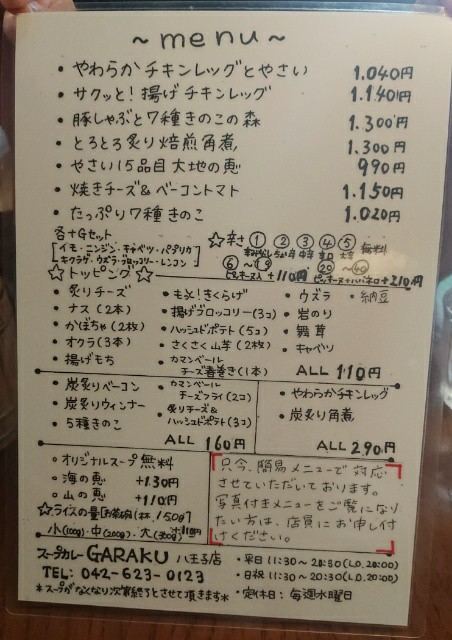 ~menu~
・やわらかチキンレッグとやさい 1.040円
・サクッと!揚げチキンレッグ 1.140円
・豚しゃぶと7種きのこの森 1.300円
・とろとろ炙り焙煎角煮 1.300円
・やさい15品目大地の恵 990円
・焼きチーズ&ベーコントマト 1.150円
・たっぷり7種きのこ 1.020円
各+Gセット
[イモ・ニンジン・キャベツ・パプリカ
キクラゲ・ウズラ・ブロッコリー・レンコン]
☆辛さ ① ② ③ ④ ⑤ 無料
⑥~⑲ +110円
⑳~㊵ ピッキーヌ+ハバネロ+210円
☆トッピング☆
・炙りチーズ
・ナス(2本)
・かぼちゃ(2枚)
・オクラ(3本)
・揚げもち
・もぷ!きくらげ
・揚げブロッコリー(3コ)
・ハッシュドポテト(5コ)
・さくさく山芋(2枚)
・カマンベール
チーズ春巻き(1本)
・ウズラ ・納豆
・岩のり
・舞茸
・キャベツ
ALL 110円
・炭炙りベーコン
・炭炙りウィンナー
・5種きのこ
・カマンベール
チーズフライ(2コ)
・炙りチーズ&
ハッシュドポテト(3コ)
ALL 160円
・やわらかチキンレッグ
・炭炙り角煮
ALL 290円
・オリジナルスープ 無料
・海の恵 +130円
・山の恵 +110円
☆ライスの量[お茶碗1杯.150g]
小(100g)・中(200g)・大(300g)+110円
只今、簡易メニューで対応
させていただいております。
写真付きメニューをご覧になり
たい方は、店員にお申し付
けください。
スープカレー GARAKU 八王子店
TEL: 042-623-0123
*スープがなくなり次第終了とさせて頂きます*
・平日 11:30~20:30(L.O.20:00)
・日祝 11:30~20:30(L.O.20:00)
・定休日:毎週水曜日